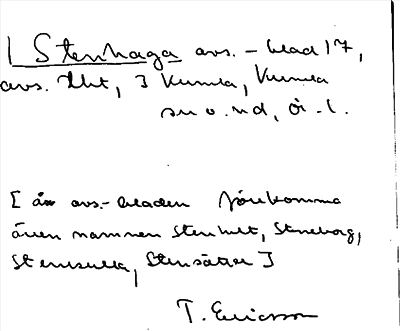 Stenhaga avs. - blad 17,
avs. Uht, i Kumla, Kumla
sn o. hd, Ör. l.
[å avs.-bladen förekomma
även namnen Stenhult, Steneborg,
Stenkulla, Stensätter]
T. Ericsson